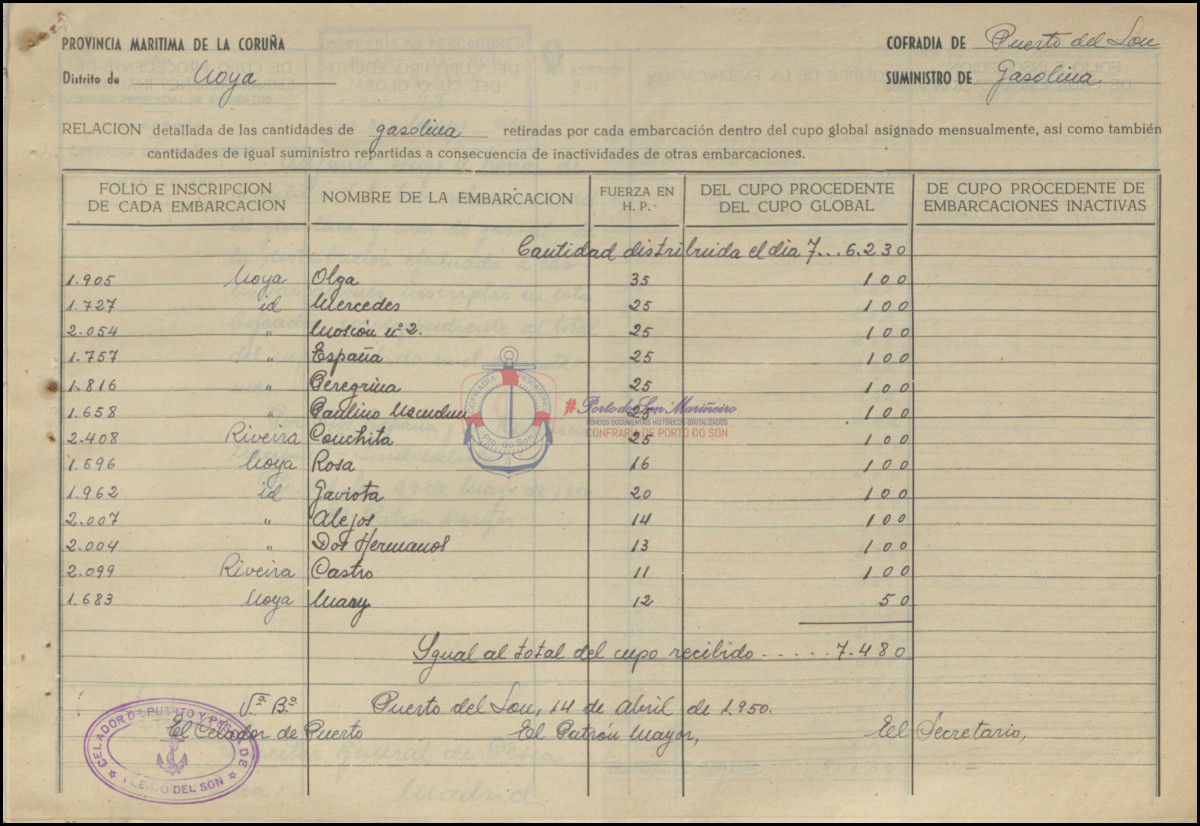 PROVINCIA MARITIMA DE LA CORUÑA
COFRADIA DE Puerto del Son
Distrito de Noya
SUMINISTRO DE Gasolina
RELACION detallada de las cantidades de gasolina retiradas por cada embarcación dentro del cupo global asignado mensualmente, así como también
cantidades de igual suministro repartidas a consecuencia de inactividades de otras embarcaciones.
FOLIO E INSCRIPCION DE CADA EMBARCACION NOMBRE DE LA EMBARCACION FUERZA EN H. P. DEL CUPO PROCEDENTE DEL CUPO GLOBAL DE CUPO PROCEDENTE DE EMBARCACIONES INACTIVAS
Cantidad distribuida el dia 7... 6.230
1.905 Noya Olga 35 100
1.727 id Mercedes 25 100
2.054 " Moción nº 2. 25 100
1.757 " España 25 100
1.816 " Peregrina 25 100
1.658 " Paulino 25 100
2.408 Riveira Conchita 25 100
1.696 Noya Rosa 16 100
1.962 id Gaviota 20 100
2.007 " Alejos 14 100
2.004 " Dos Hermanos 13 100
2.099 Riveira Castro 11 100
1.683 Noya Mary 12 50
Ygual al total del cupo recibido ..... 7.480
Vº Bº Puerto del Son, 14 de Abril de 1.950.
El Celador de Puerto El Patrón Mayor, El Secretario,
CELADOR DE PUERTO Y PESCA DE
DEL SON
COFRADIA PESCADORES
Pto. do Son
# Porto do Son Mariñeiro
FONDOS DOCUMENTAIS HISTÓRICOS DIGITALIZADOS
CONFRARÍA DE PORTO DO SON